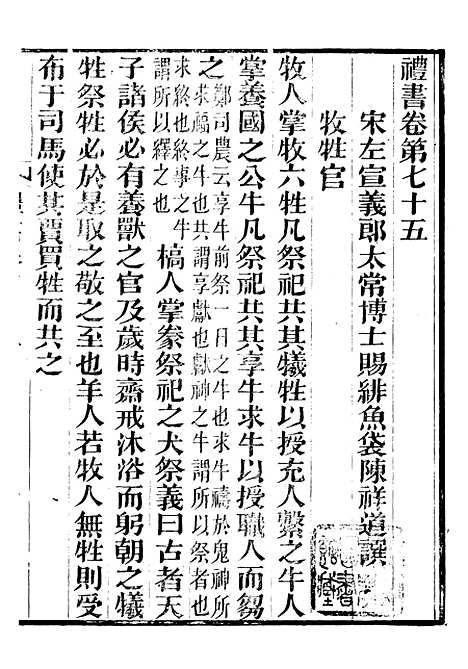 禮書卷第七十五
宋左宣義郎太常博士賜緋魚袋陳祥道譔
牧牲官
牧人掌牧六牲凡祭祀共其犧牲以授充人繫之牛人
掌養國之公牛凡祭祀共其享牛求牛以授職人而芻
之鄭司農云享牛前祭一日之牛也求牛禱於鬼神所
求福之牛也共謂享獻也獻神之牛謂所以祭者也
求終也終事之牛
謂所以繹之也
槁人掌豢祭祀之犬祭義曰古者天
子諸侯必有養獸之官及歲時齋戒沐浴而躬朝之犧
牷祭牲必於是取之敬之至也羊人若牧人無牲則受
布于司馬使其賈買牲而共之